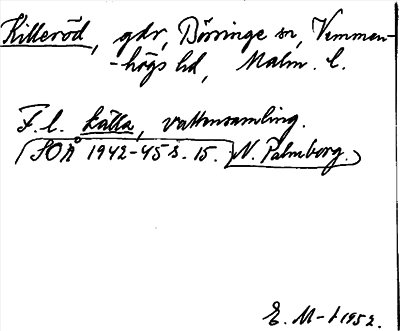 Killeröd, gdr, Börringe sn, Vemmen-
-högs hd, Malm. l.
F.l. källa, vattensamling.
(SOÅ 1942-45 s. 15. N. Palmborg.)
E. M-t 1952.